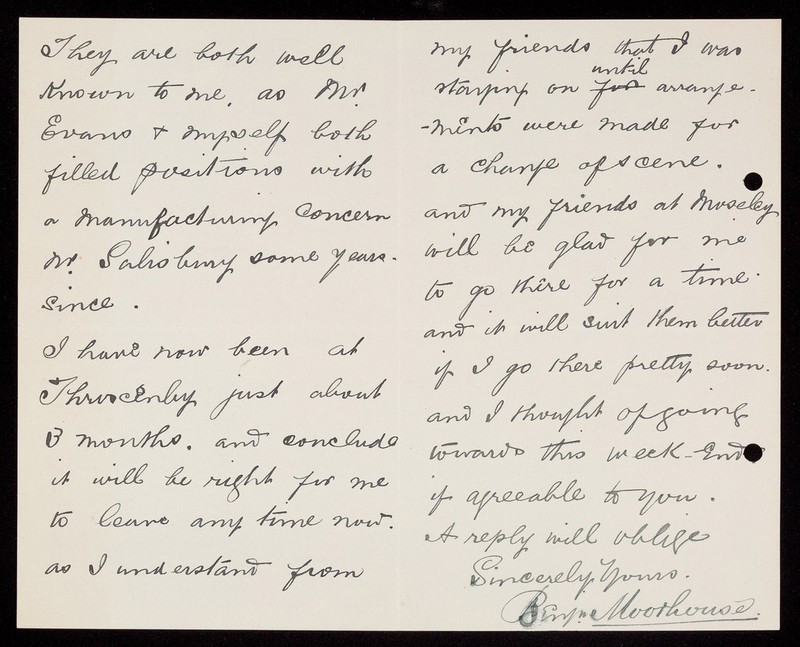 They are both well
known to me, as Mr.
Evans & myself both
filled positions with
a manufacturing concern
Nr. Salisbury some years.
since.
I have now been at
just about
3 months. and conclude
it will be right for me
to leave any time now.
as I understand from
my friends that I was
staying on for until arrange-
-ments were made for
a change of scene.
and my friends at Moseley
will be glad for me
to go there for a time.
and it will suit them better
if I go there pretty soon.
and I thought of going
towards this week-End
if agreeable to you.
A reply will oblige
Sincerely Yours.
Benjn. Moorhouse.